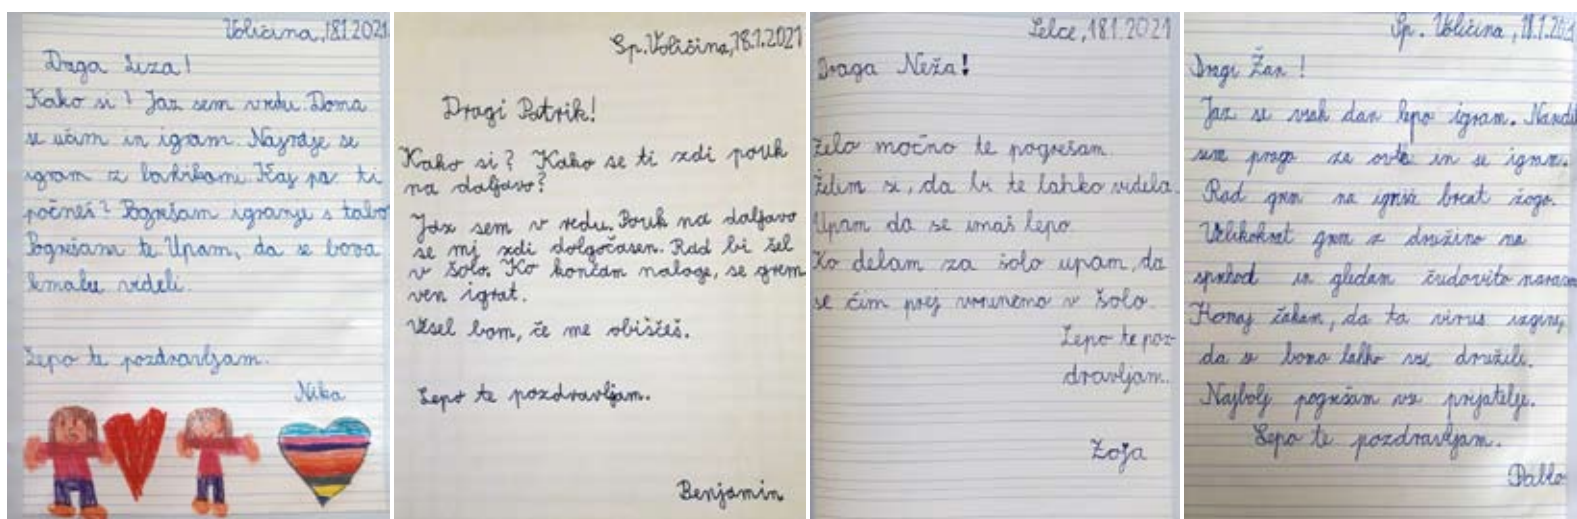 Voličina, 18.1.2021
Draga Liza!
Kako si? Jaz sem vredu. Doma
se učim in igram. Najraje se
igram z barbikami. Kaj pa ti
počneš? Pogrešam igranje s tabo
Pogrešam te. Upam, da se bova
kmalu videli.
Lepo te pozdravljam.
Nika
Sp. Voličina, 18.1.2021
Dragi Patrik!
Kako si? Kako se ti zdi pouk
na daljavo?
Jaz sem v redu. Pouk na daljavo
se mi zdi dolgočasen. Rad bi šel
v šolo. Ko končam naloge, se grem
ven igrat.
Vesel bom, če me obiščeš.
Lepo te pozdravljam.
Benjamin
Selce, 18.1.2021
Draga Neža!
Zelo močno te pogrešam.
Želim si, da bi te lahko videla.
Upam da se imaš lepo.
Ko delam za šolo upam, da
se čim prej vrnemo v šolo.
Lepo te poz-
dravljam.
Zoja
Sp. Voličina, 18.1.2021
Dragi Žan!
Jaz se vsak dan lepo igram. Naredil
sem progo za avte in se igram.
Rad grem na igrišče brcat žogo.
Velikokrat grem z družino na
sprehod in gledam čudovito naravo
Komaj čakam, da ta virus izgine,
da se bomo lahko vsi družili.
Najbolj pogrešam vse prijatelje.
Lepo te pozdravljam.
Pablo